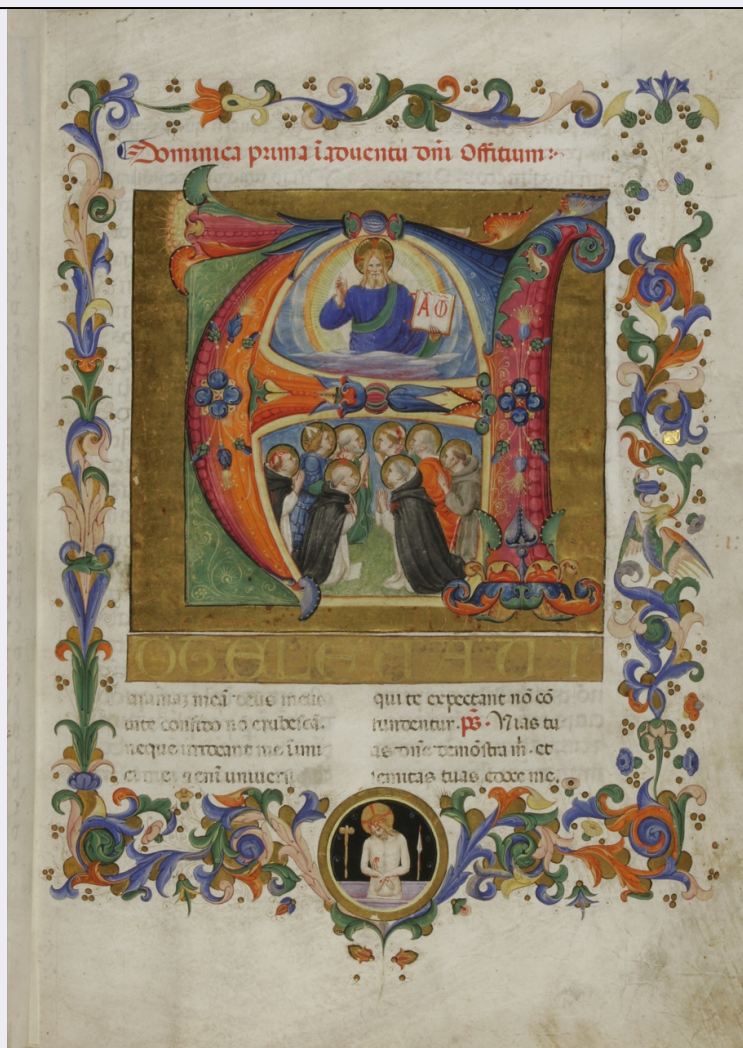 Dominica prima ī aduentu dn̄i Offitium:~
A Ꞷ
A
D TE LEVAVI
animaz meā deus
confido nō erubescā.
neque irrideant me inimi
ci mei ⁊ enī univers
qui te expectant nō cō
fundentur. ps. Vias tu
as dn̄e demōstra m̄. et
semitas tuas edoce me.